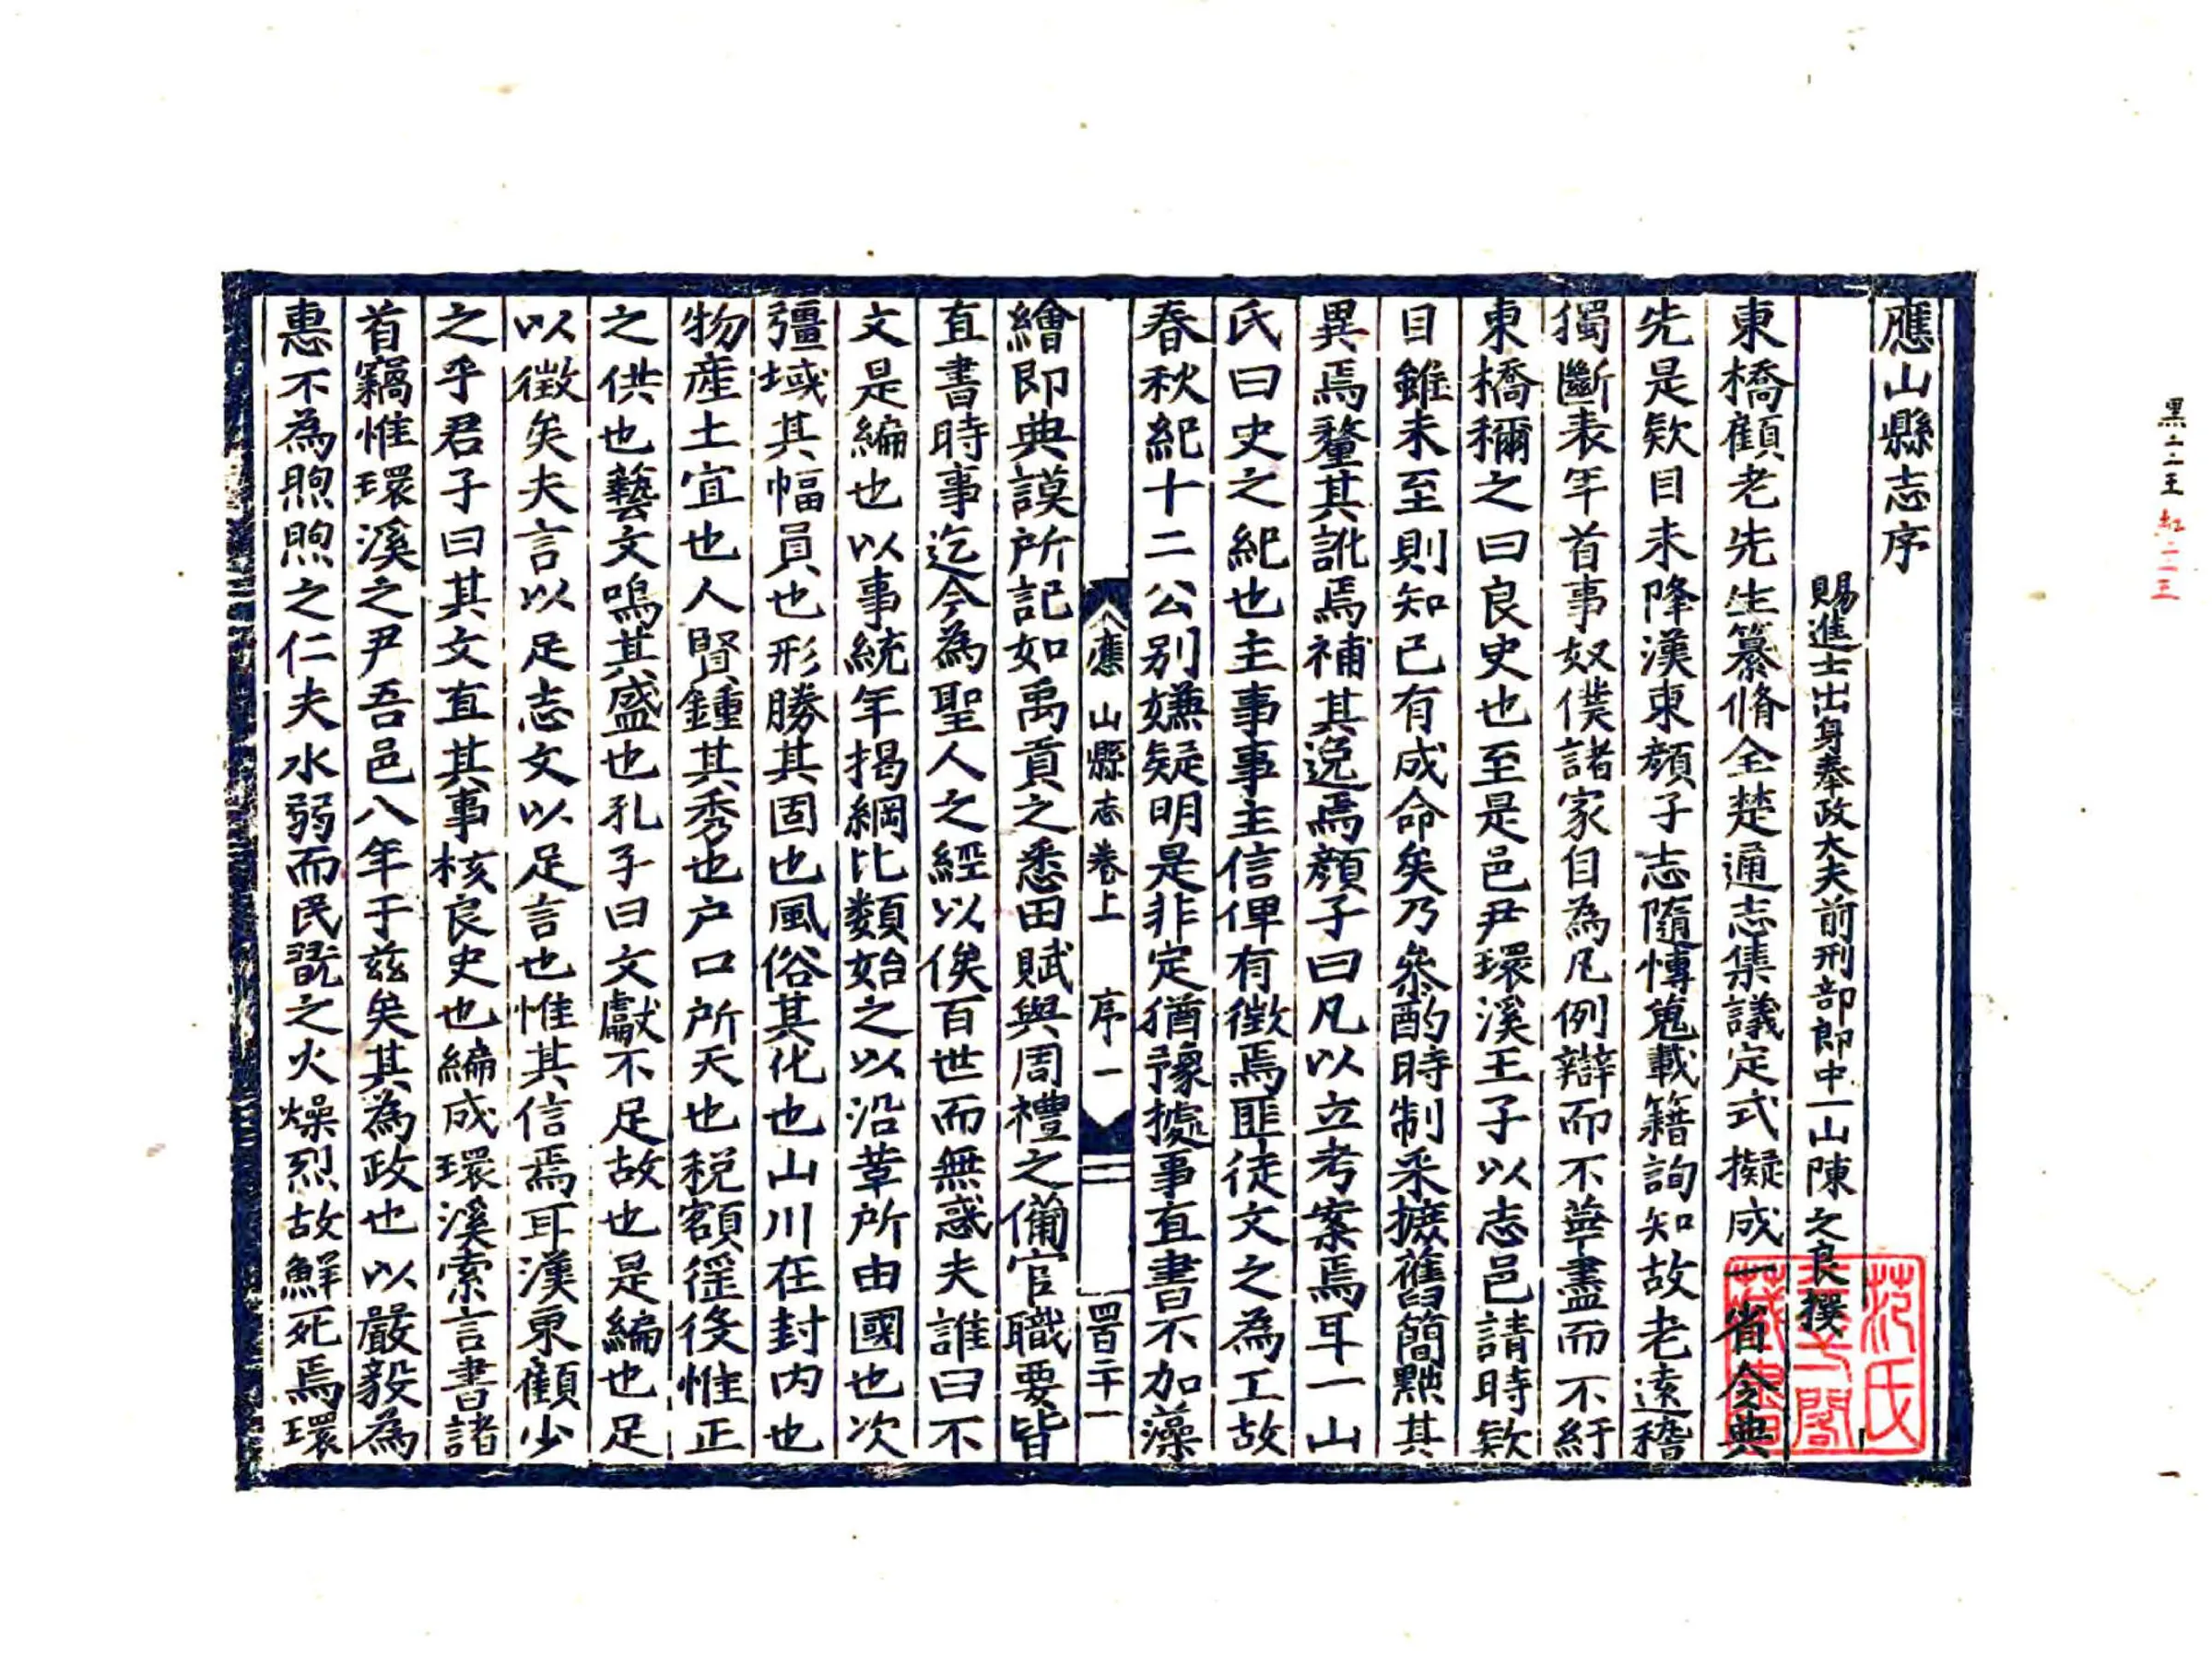 應山縣志序
賜進士出身奉政大夫前刑部郎中一山陳之良撰
東橋顧老先生纂脩全楚通志集議定式擬成一省令典
先是欵目未降漢東顏子志隨慱蒐載籍詢知故老遠稽
獨斷表年首事奴僕諸家自為凡例辯而不華盡而不紆
東橋稱之曰良史也至是邑尹環溪王子以志邑請時欵
目雖未至則知已有成命矣乃叅酌時制采摭舊簡黜其
異焉釐其訛焉補其逸焉顏子曰凡以立考案焉耳一山
氏曰史之紀也主事事主信俾有徵焉匪徒文之為工故
春秋紀十二公別嫌疑明是非定猶豫據事直書不加藻
應山縣志卷上 序一 四百二十一
繪即典謨所記如禹貢之悉田賦與周禮之備官職要皆
直書時事迄今為聖人之經以俟百世而無惑夫誰曰不
文是編也以事統年揭綱比類始之以沿革所由國也次
彊域其幅員也形勝其固也風俗其化也山川在封内也
物產土宜也人賢鍾其秀也户口所天也税額徭役惟正
之供也藝文鳴其盛也孔子曰文獻不足故也是編也足
以徵矣夫言以足志文以足言也惟其信焉耳漢東顧少
之乎君子曰其文直其事核良史也編成環溪索言書諸
首竊惟環溪之尹吾邑八年于兹矣其為政也以嚴毅為
惠不為煦煦之仁夫水弱而民翫之火燥烈故鮮死焉環
范氏
天一閣
藏書
黑二二王 紅二二三
一